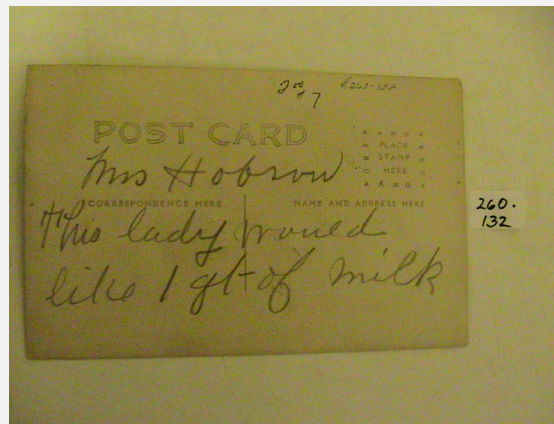 260-132
POST CARD
PLACE
STAMP
HERE
Mrs Hobson
CORRESPONDENCE HERE
NAME AND ADDRESS HERE
This lady would
like 1 qt of milk
260.
132